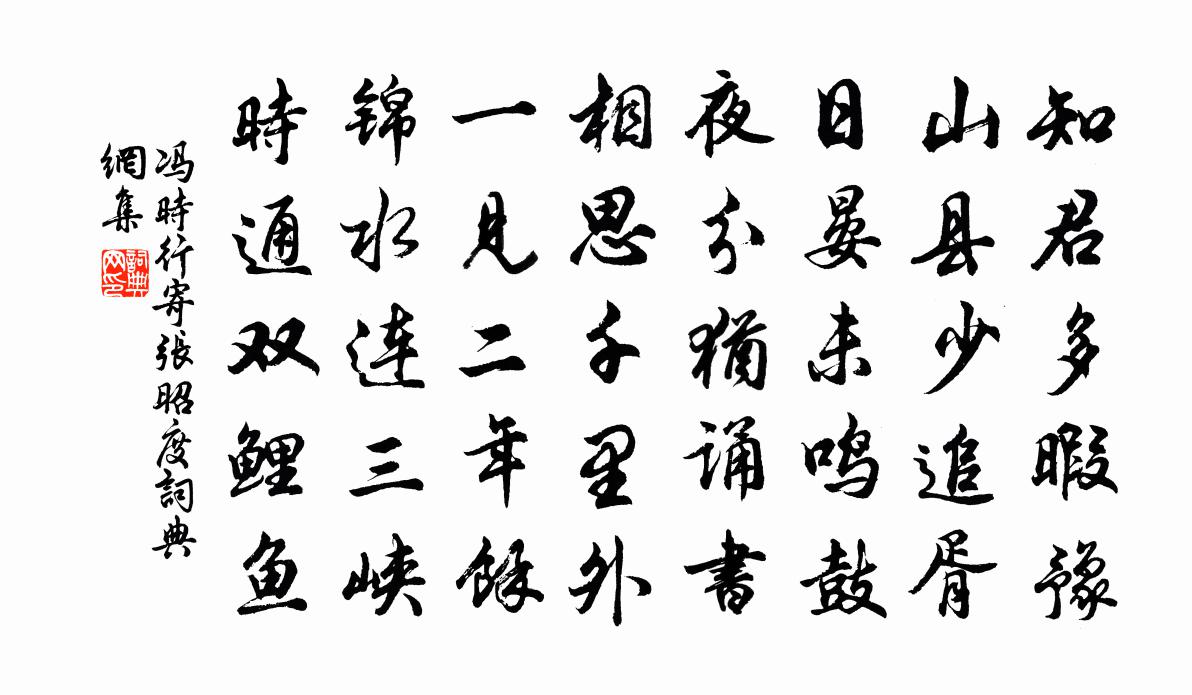 知君多暇豫
山县少追胥
日晏未鸣鼓
夜分犹诵書
相思千里外
一见二年餘
锦水连三峡
時通双鲤鱼
冯時行寄張昭度詞典
網集
詞典网印